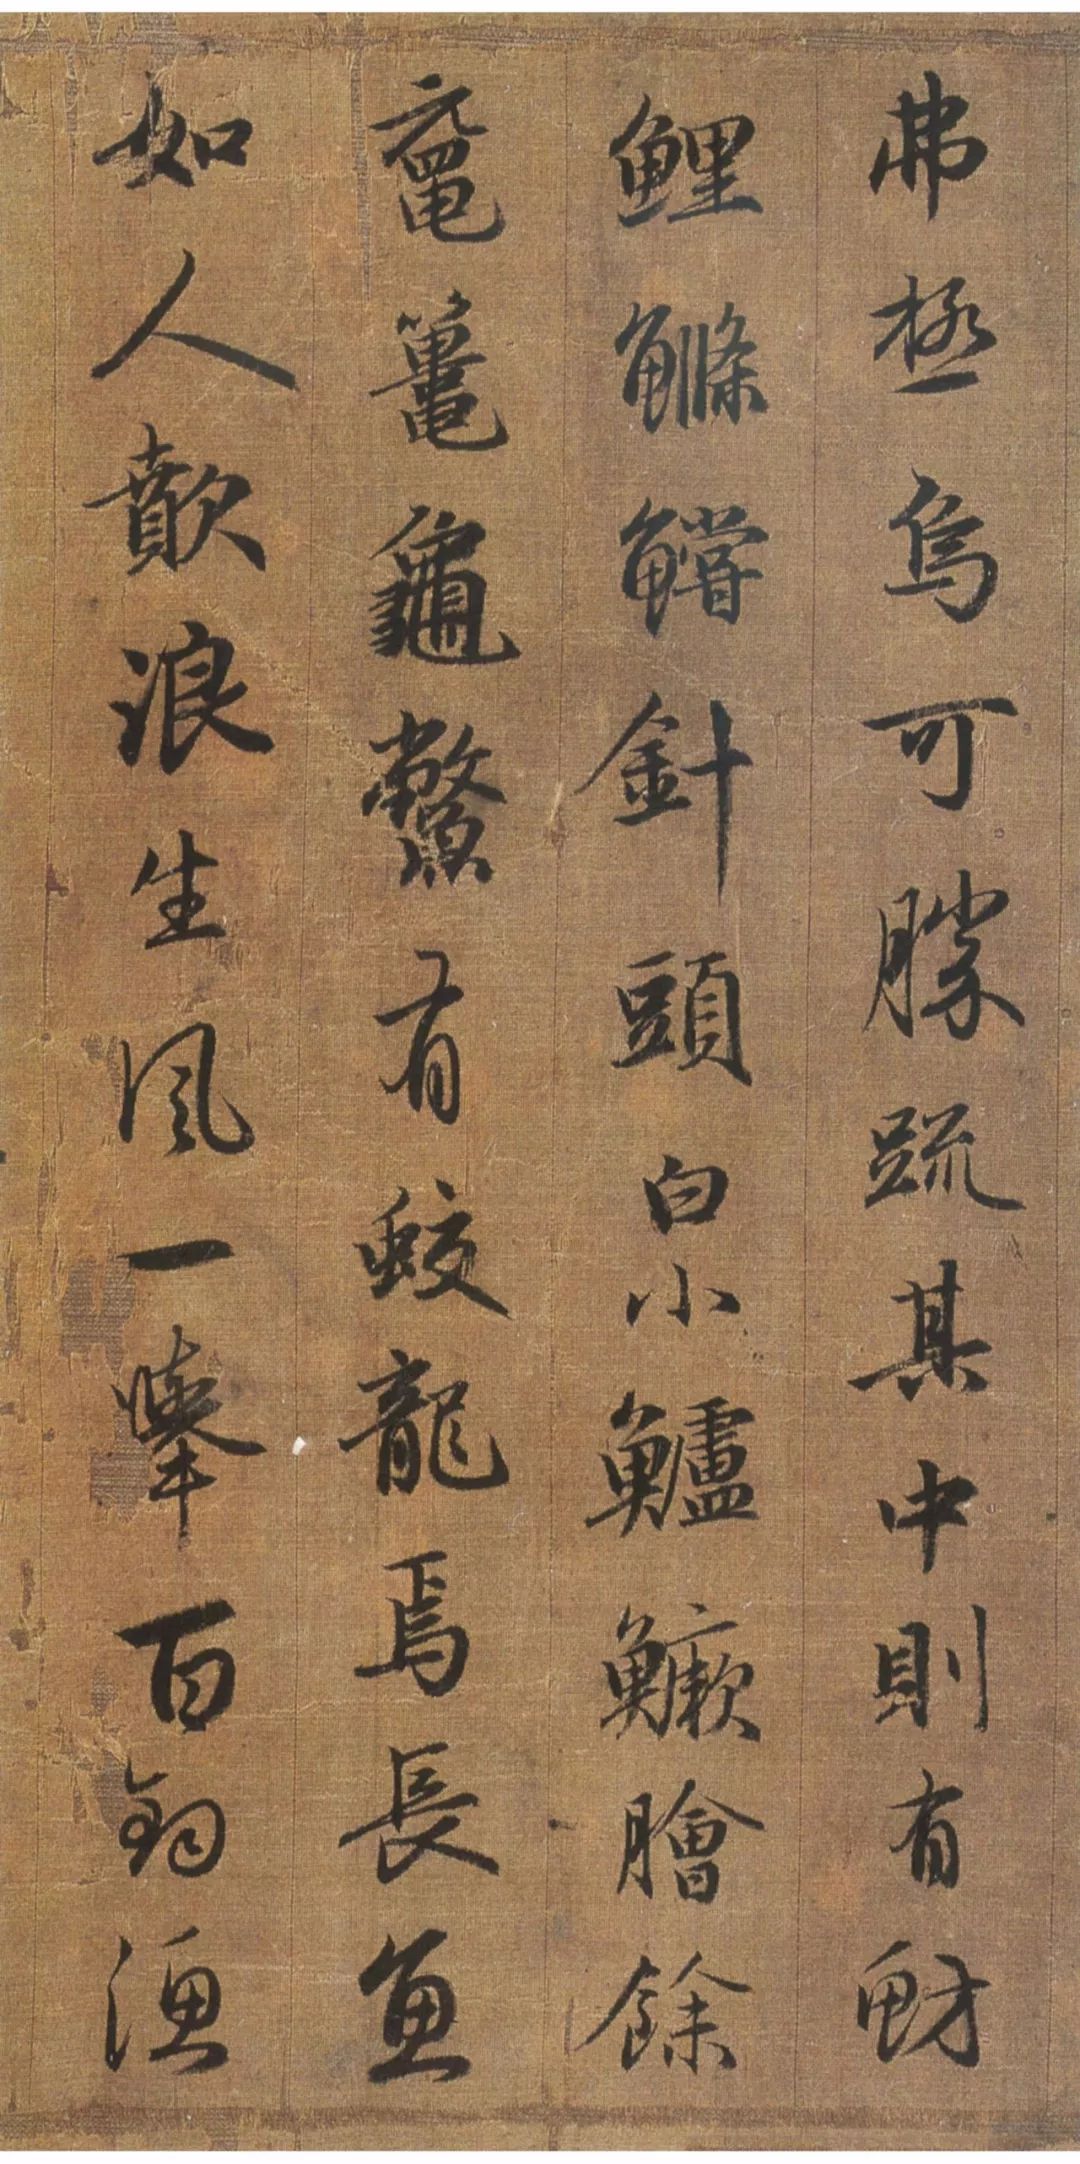 弗極烏可勝䟽其中則有魴
鯉鰷鱨針頭白小鱸鱖膾餘
黿鼉龜鱉有蛟龍焉長魚
如人歕浪生風一舉百鈞漁